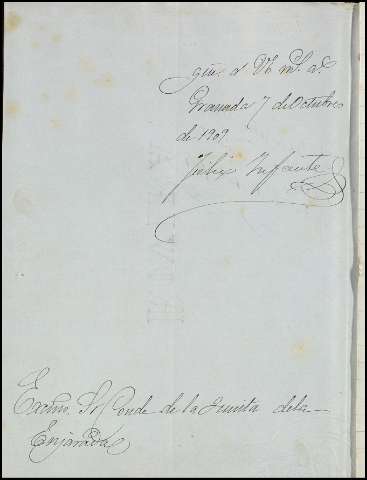 gue. a V. E. m.s a.s
Granada 7 de Octubre
de 1909
Felix Infante
Excmo. Sr Conde de la Quinta de la
Enjarada